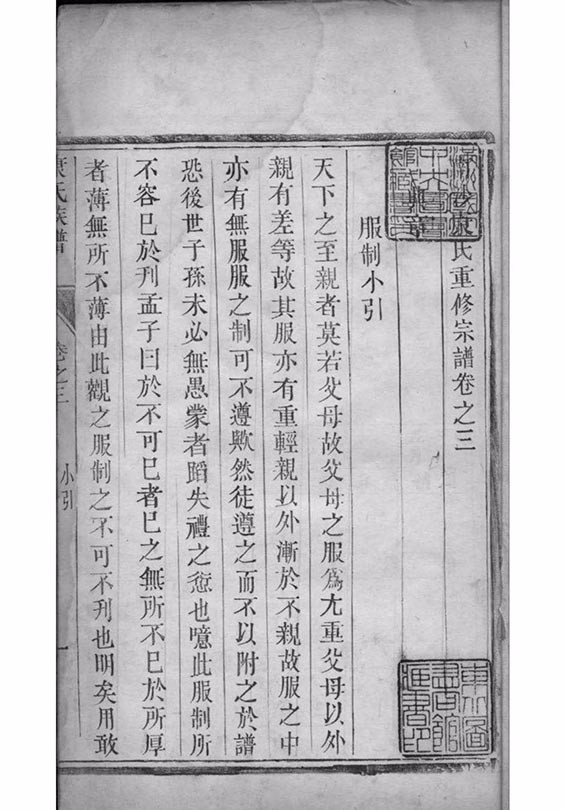 氏重修宗譜卷之三
服制小引
天下之至親者莫若父母故父母之服爲尤重父母以外
親有差等故其服亦有重輕親以外漸於不親故服之中
亦有無服服之制可不遵歟然徒遵之而不以附之於譜
恐後世子孫未必無愚蒙者蹈失禮之愆也噫此服制所
不容已於刋孟子曰於不可已者已之無所不已於所厚
者薄無所不薄由此觀之服制之不可不刋也明矣用敢
氏族譜
卷之三
小引
一